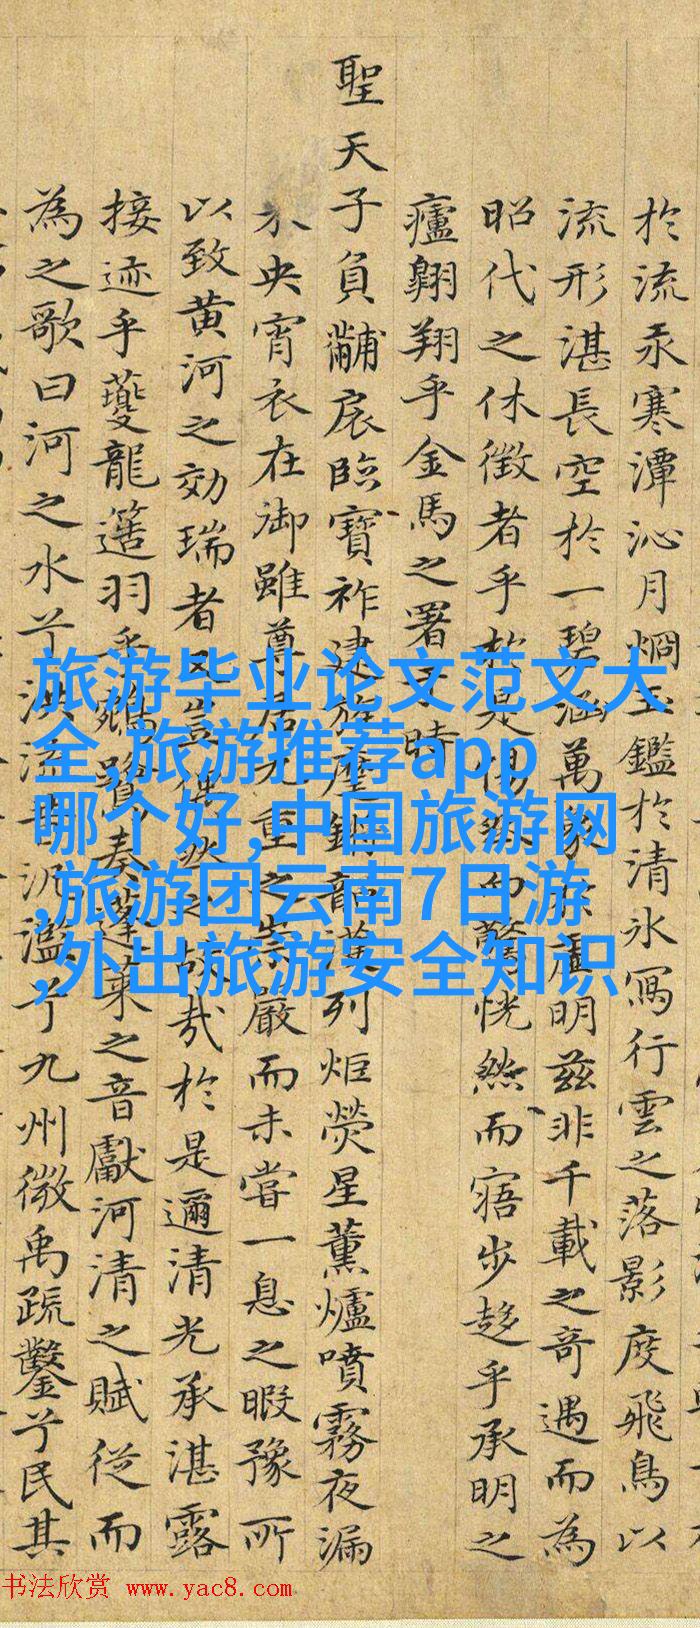 於流汞寒潭沁月烱玉鑑於清氷寫行雲之落影度飛鳥以
流形湛長空於一碧涵萬象
明兹非千載之奇遇而為
昭代之休徵者乎於是
恍然而寤步趍乎承明之
廬翱翔乎金馬之署于時
聖天子負黼扆臨寶祚建
列炬熒星薰爐噴霧夜漏
未央宵衣在御雖尊居九重之崇嚴而未嘗一息之暇豫所
以致黄河之効瑞者夫豈偶然之故哉於是邇清光承湛露
接迹乎夔龍簉羽乎鵷鷺奏蓬萊之音獻河清之賦從而
為之歌曰河之水兮洪流昔氾濫兮九州微禹疏鑿兮民其
旅游毕业论文范文大
全,旅游推荐app
哪个好,中国旅游网
,旅游团云南7日游
,外出旅游安全知识
书法欣赏 www.yac8.com